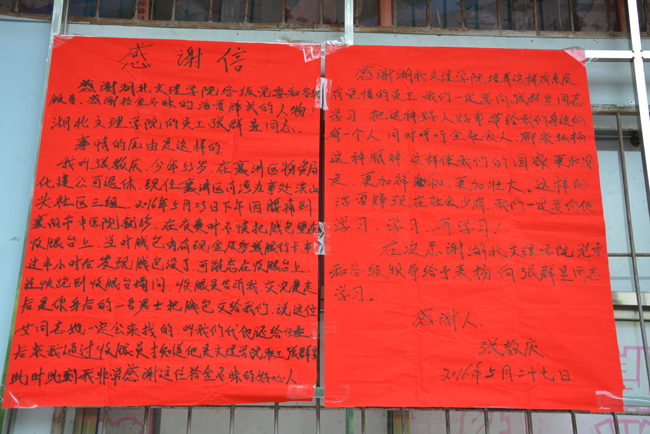 感谢信
感谢湖北文理学院各级党委和各级
领导，感谢拾金不昧的活雷锋我的人物
湖北文理学院的员工张群显同志。
事情的原由是这样的
我叫张敬庆，今年55岁，在襄州区物资局
化建公司退休，现住襄州区肖湾办事处洪山
头社区三组，2016年5月25日下午因腰痛到
襄阳市中医院就诊，在交费时不慎把钱包
收银台上，当时钱包内有现金及多张银行卡
半小时后发现钱包没了，可能忘在收银台上
赶快跑到收银台询问，收银员告诉我交完费走
后是你身后的一名男士把钱包交给我们，说这位
女同志她一定会来找的，叫我们代他还给
后来我通过收银员才知道他是文理学院职工张群显
此时此刻我非常感谢这位拾金不昧的好心人
感谢湖北文理学院培养这样有素质
有觉悟的员工，我们一定要向张群显同志
学习，把这种好人好事带给我们身边的
每一个人，同时呼吁全社会人，都来弘扬
这种精神，这样使我们的国家更加富
足，更加祥和，更加壮大。这样的
活雷锋现在社会少有，我们一定要向他
学习、学习、再学习
在次感谢湖北文理学院党委
和各级领导给予表扬向张群显同志
学习。
感谢人：
张敬庆
2016年5月二十七日